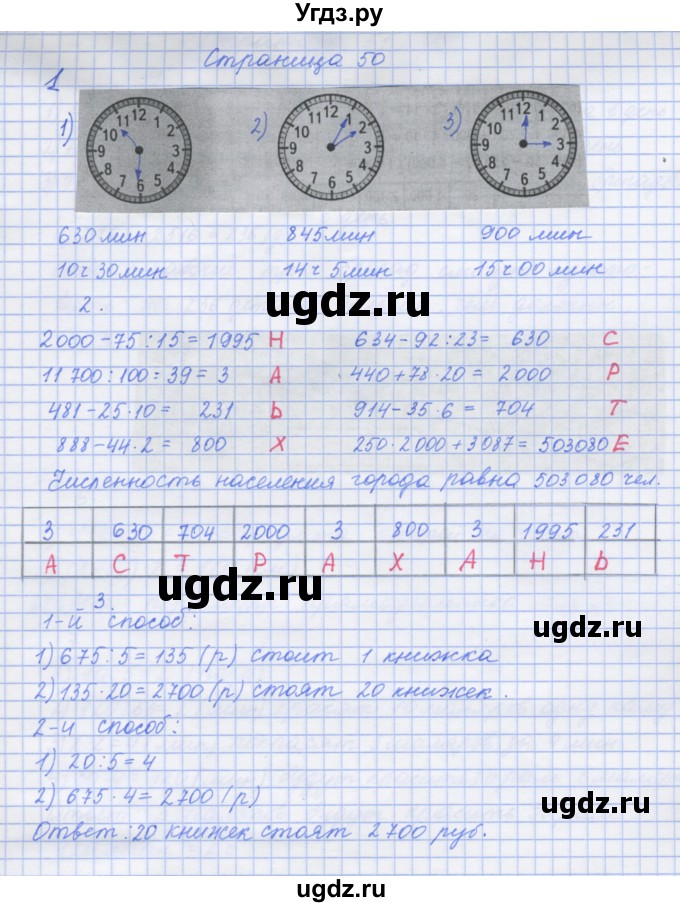 Угдз.ру
Страница 50
1
1) 2) 3)
11 12 1 10 2 9 3 8 4 7 6 5
11 12 1 10 2 9 3 8 4 7 6 5
11 12 1 10 2 9 3 8 4 7 6 5
630 мин 845 мин 900 мин
10ч 30мин 14ч 5мин 15ч 00мин
ugdz.ru ugdz.ru
2.
2000-75:15=1995 Н 634-92:23= 630 С
11700:100:39=3 А 440+78·20=2000 Р
481-25·10= 231 Ь 914-35·6= 704 Т
888-44·2= 800 Х 250·2000+3087=503080 Е
Численность населения города равна 503 080 чел.
3 630 704 2000 3 800 3 1995 231
А С Т Р А Х А Н Ь
ugdz.ru
3.
1-й способ:
ugdz.ru
1) 675:5=135 (р) стоит 1 книжка
2) 135·20=2700 (р) стоят 20 книжек.
2-й способ:
1) 20:5=4
2) 675·4=2700 (р)
ugdz.ru
Ответ: 20 книжек стоят 2700 руб.
ugdz.ru